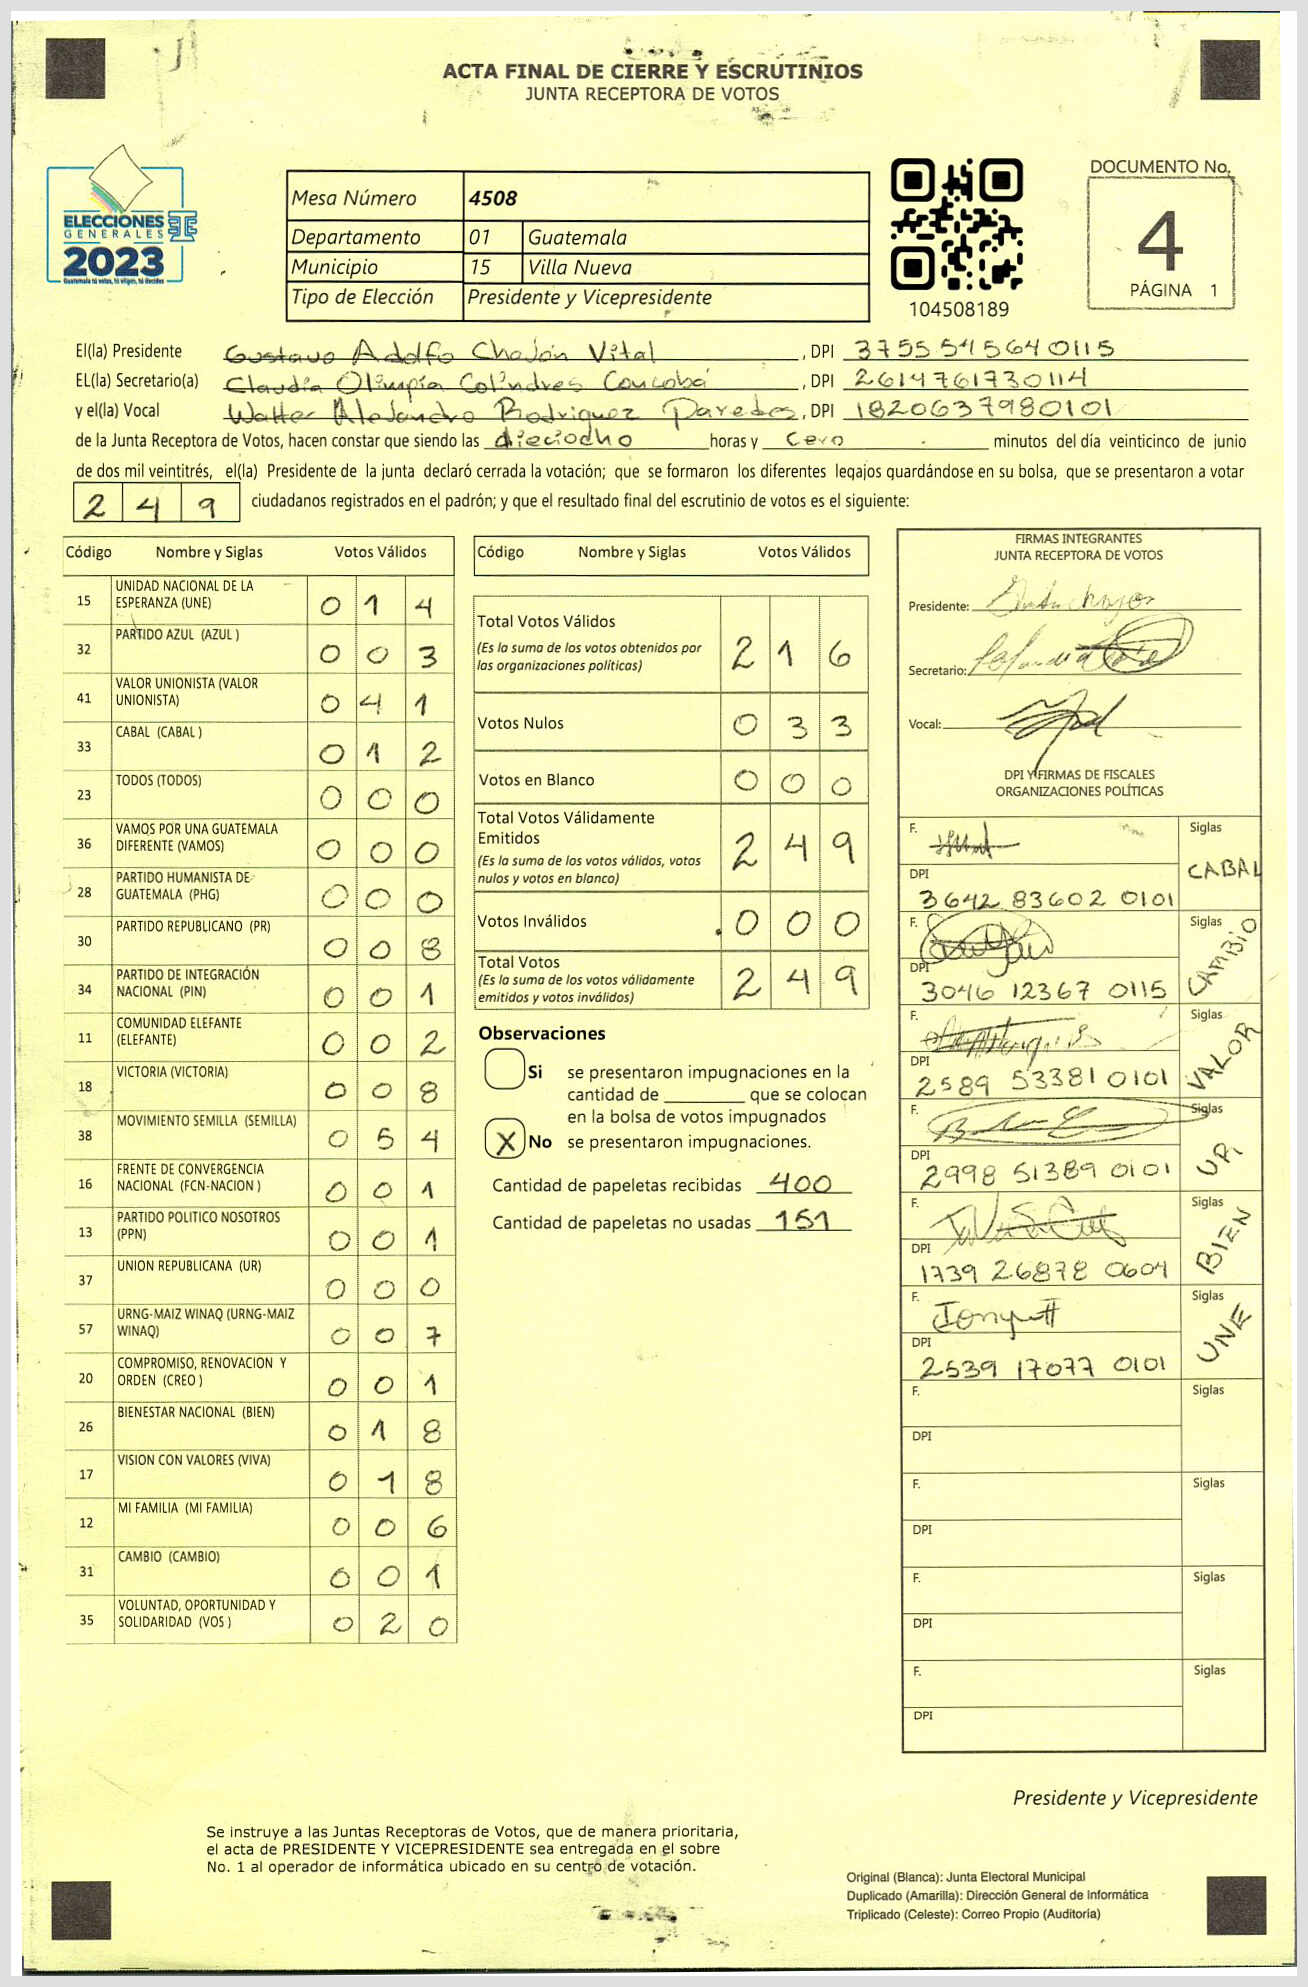 ACTA FINAL DE CIERRE Y ESCRUTINIOS
JUNTA RECEPTORA DE VOTOS
ELECCIONES
GENERALES
2023
Guatemala tú votas, tú eliges, tú decides
Mesa Número 4508
Departamento 01 Guatemala
Municipio 15 Villa Nueva
Tipo de Elección Presidente y Vicepresidente
104508189
DOCUMENTO No.
4
PÁGINA 1
El(la) Presidente Gustavo Adolfo Chajón Vital, DPI 3755545640115
EL(la) Secretario(a) Claudia Olimpia Colindres Concobá, DPI 2614761730114
y el(la) Vocal Walter Alejandro Rodriguez Paredes, DPI 1820637980101
de la Junta Receptora de Votos, hacen constar que siendo las dieciocho horas y cero minutos del día veinticinco de junio
de dos mil veintitrés, el(la) Presidente de la junta declaró cerrada la votación; que se formaron los diferentes legajos guardándose en su bolsa, que se presentaron a votar
249 ciudadanos registrados en el padrón; y que el resultado final del escrutinio de votos es el siguiente:
Código Nombre y Siglas Votos Válidos
15 UNIDAD NACIONAL DE LA ESPERANZA (UNE) 014
32 PARTIDO AZUL (AZUL ) 003
41 VALOR UNIONISTA (VALOR UNIONISTA) 041
33 CABAL (CABAL ) 012
23 TODOS (TODOS) 000
36 VAMOS POR UNA GUATEMALA DIFERENTE (VAMOS) 000
28 PARTIDO HUMANISTA DE GUATEMALA (PHG) 000
30 PARTIDO REPUBLICANO (PR) 008
34 PARTIDO DE INTEGRACIÓN NACIONAL (PIN) 001
11 COMUNIDAD ELEFANTE (ELEFANTE) 002
18 VICTORIA (VICTORIA) 008
38 MOVIMIENTO SEMILLA (SEMILLA) 054
16 FRENTE DE CONVERGENCIA NACIONAL (FCN-NACION ) 001
13 PARTIDO POLITICO NOSOTROS (PPN) 001
37 UNION REPUBLICANA (UR) 000
57 URNG-MAIZ WINAQ (URNG-MAIZ WINAQ) 007
20 COMPROMISO, RENOVACION Y ORDEN (CREO ) 001
26 BIENESTAR NACIONAL (BIEN) 018
17 VISION CON VALORES (VIVA) 018
12 MI FAMILIA (MI FAMILIA) 006
31 CAMBIO (CAMBIO) 001
35 VOLUNTAD, OPORTUNIDAD Y SOLIDARIDAD (VOS ) 020
Código Nombre y Siglas Votos Válidos
Total Votos Válidos 216
(Es la suma de los votos obtenidos por las organizaciones políticas)
Votos Nulos 033
Votos en Blanco 000
Total Votos Válidamente Emitidos 249
(Es la suma de los votos válidos, votos nulos y votos en blanco)
Votos Inválidos 000
Total Votos 249
(Es la suma de los votos válidamente emitidos y votos inválidos)
Observaciones
Si se presentaron impugnaciones en la
cantidad de ________ que se colocan
en la bolsa de votos impugnados
X No se presentaron impugnaciones.
Cantidad de papeletas recibidas 400
Cantidad de papeletas no usadas 151
FIRMAS INTEGRANTES
JUNTA RECEPTORA DE VOTOS
Presidente:
Secretario:
Vocal:
DPI Y FIRMAS DE FISCALES
ORGANIZACIONES POLÍTICAS
F. Siglas CABAL
DPI 3642 83602 0101
F. Siglas CAMBIO
DPI 3046 12367 0115
F. Siglas VALOR
DPI 2589 53381 0101
F. Siglas
DPI 2998 51389 0101
F. Siglas BIEN
DPI 1739 26878 0604
F. Siglas UNE
DPI 2539 17077 0101
F. Siglas
DPI
F. Siglas
DPI
F. Siglas
DPI
F. Siglas
DPI
Presidente y Vicepresidente
Se instruye a las Juntas Receptoras de Votos, que de manera prioritaria,
el acta de PRESIDENTE Y VICEPRESIDENTE sea entregada en el sobre
No. 1 al operador de informática ubicado en su centro de votación.
Original (Blanca): Junta Electoral Municipal
Duplicado (Amarilla): Dirección General de Informática
Triplicado (Celeste): Correo Propio (Auditoría)